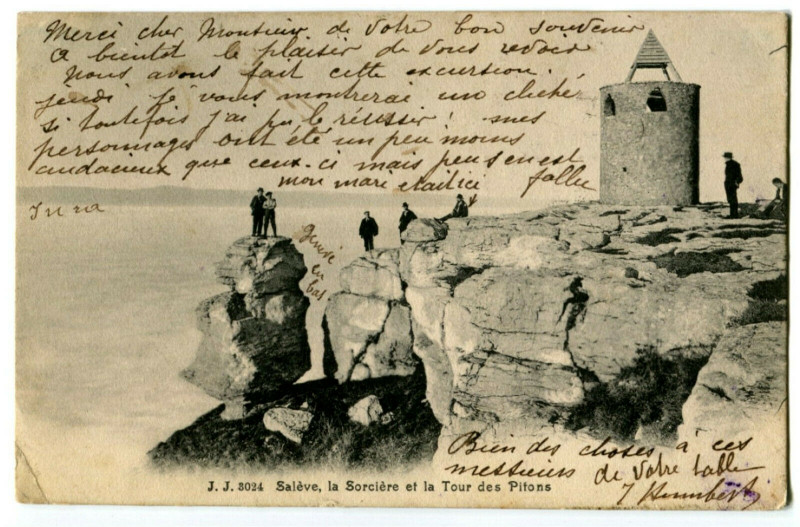 Merci cher Monsieur de votre bon souvenir
A bientot le plaisir de vous revoir
nous avons fait cette excursion.
jeudi je vous montrerai un cliché
si toutefois j'ai pu le réussir! mes
personnages ont été un peu moins
audacieux que ceux-ci mais peu s'en est
fallu
mon mari etait ici
genève
en
bas
Bien des choses à ces
messieurs de votre table
J. J. 3024 Salève, la Sorcière et la Tour des Pitons